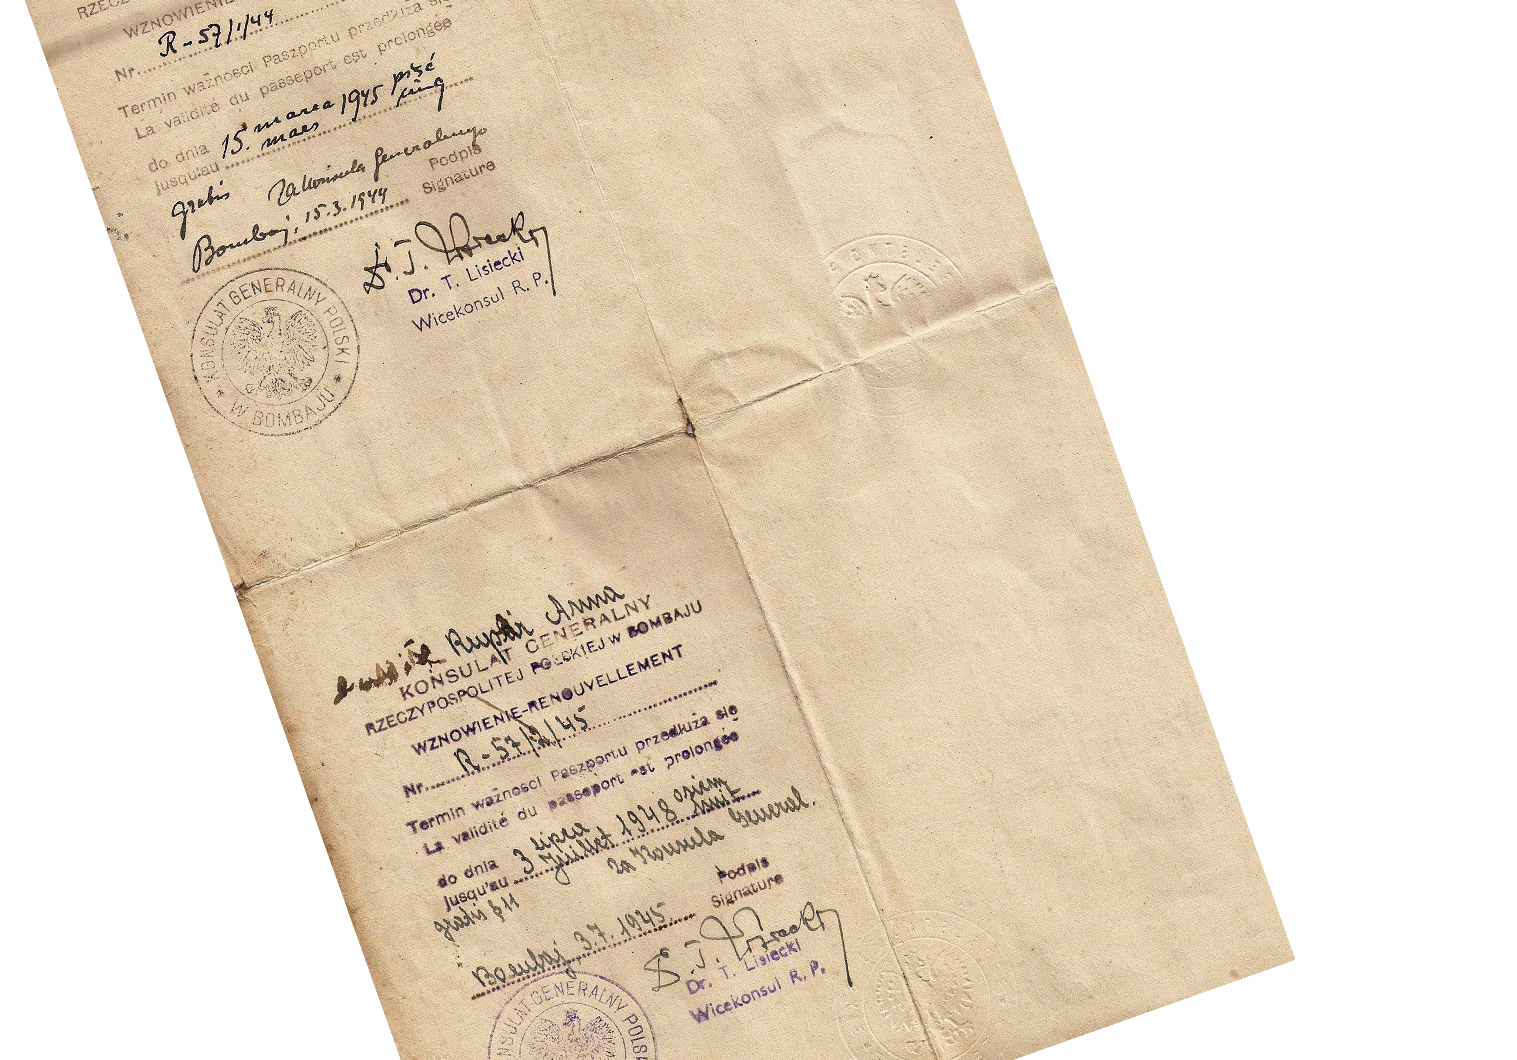 RZECZ
WZNOWIENIE
Nr. R-57/1/44
Termin ważności Paszportu przedłuża się
La validité du passeport est prolongée
do dnia 15. marca 1945 pięć
jusqu'au mars cinq
gratis Za Konsula Generalnego
Podpis
Bombaj, 15.3.1944 Signature
Dr. T. Lisiecki
Dr. T. Lisiecki
Wicekonsul R. P.
KONSULAT GENERALNY POLSKI
* W BOMBAJU *
Anna
KONSULAT GENERALNY
RZECZYPOSPOLITEJ POLSKIEJ W BOMBAJU
WZNOWIENIE-RENOUVELLEMENT
Nr. R-57/2/45
Termin ważności Paszportu przedłuża się
La validité du passeport est prolongée
do dnia 3 lipca 1948 osiem
jusqu'au juillet huit
za Konsula General.
gratis § 11
Podpis
Bombaj, 3.7.1945 Signature
Dr. T. Lisiecki
Dr. T. Lisiecki
Wicekonsul R. P.
NSULAT GENERALNY POLS